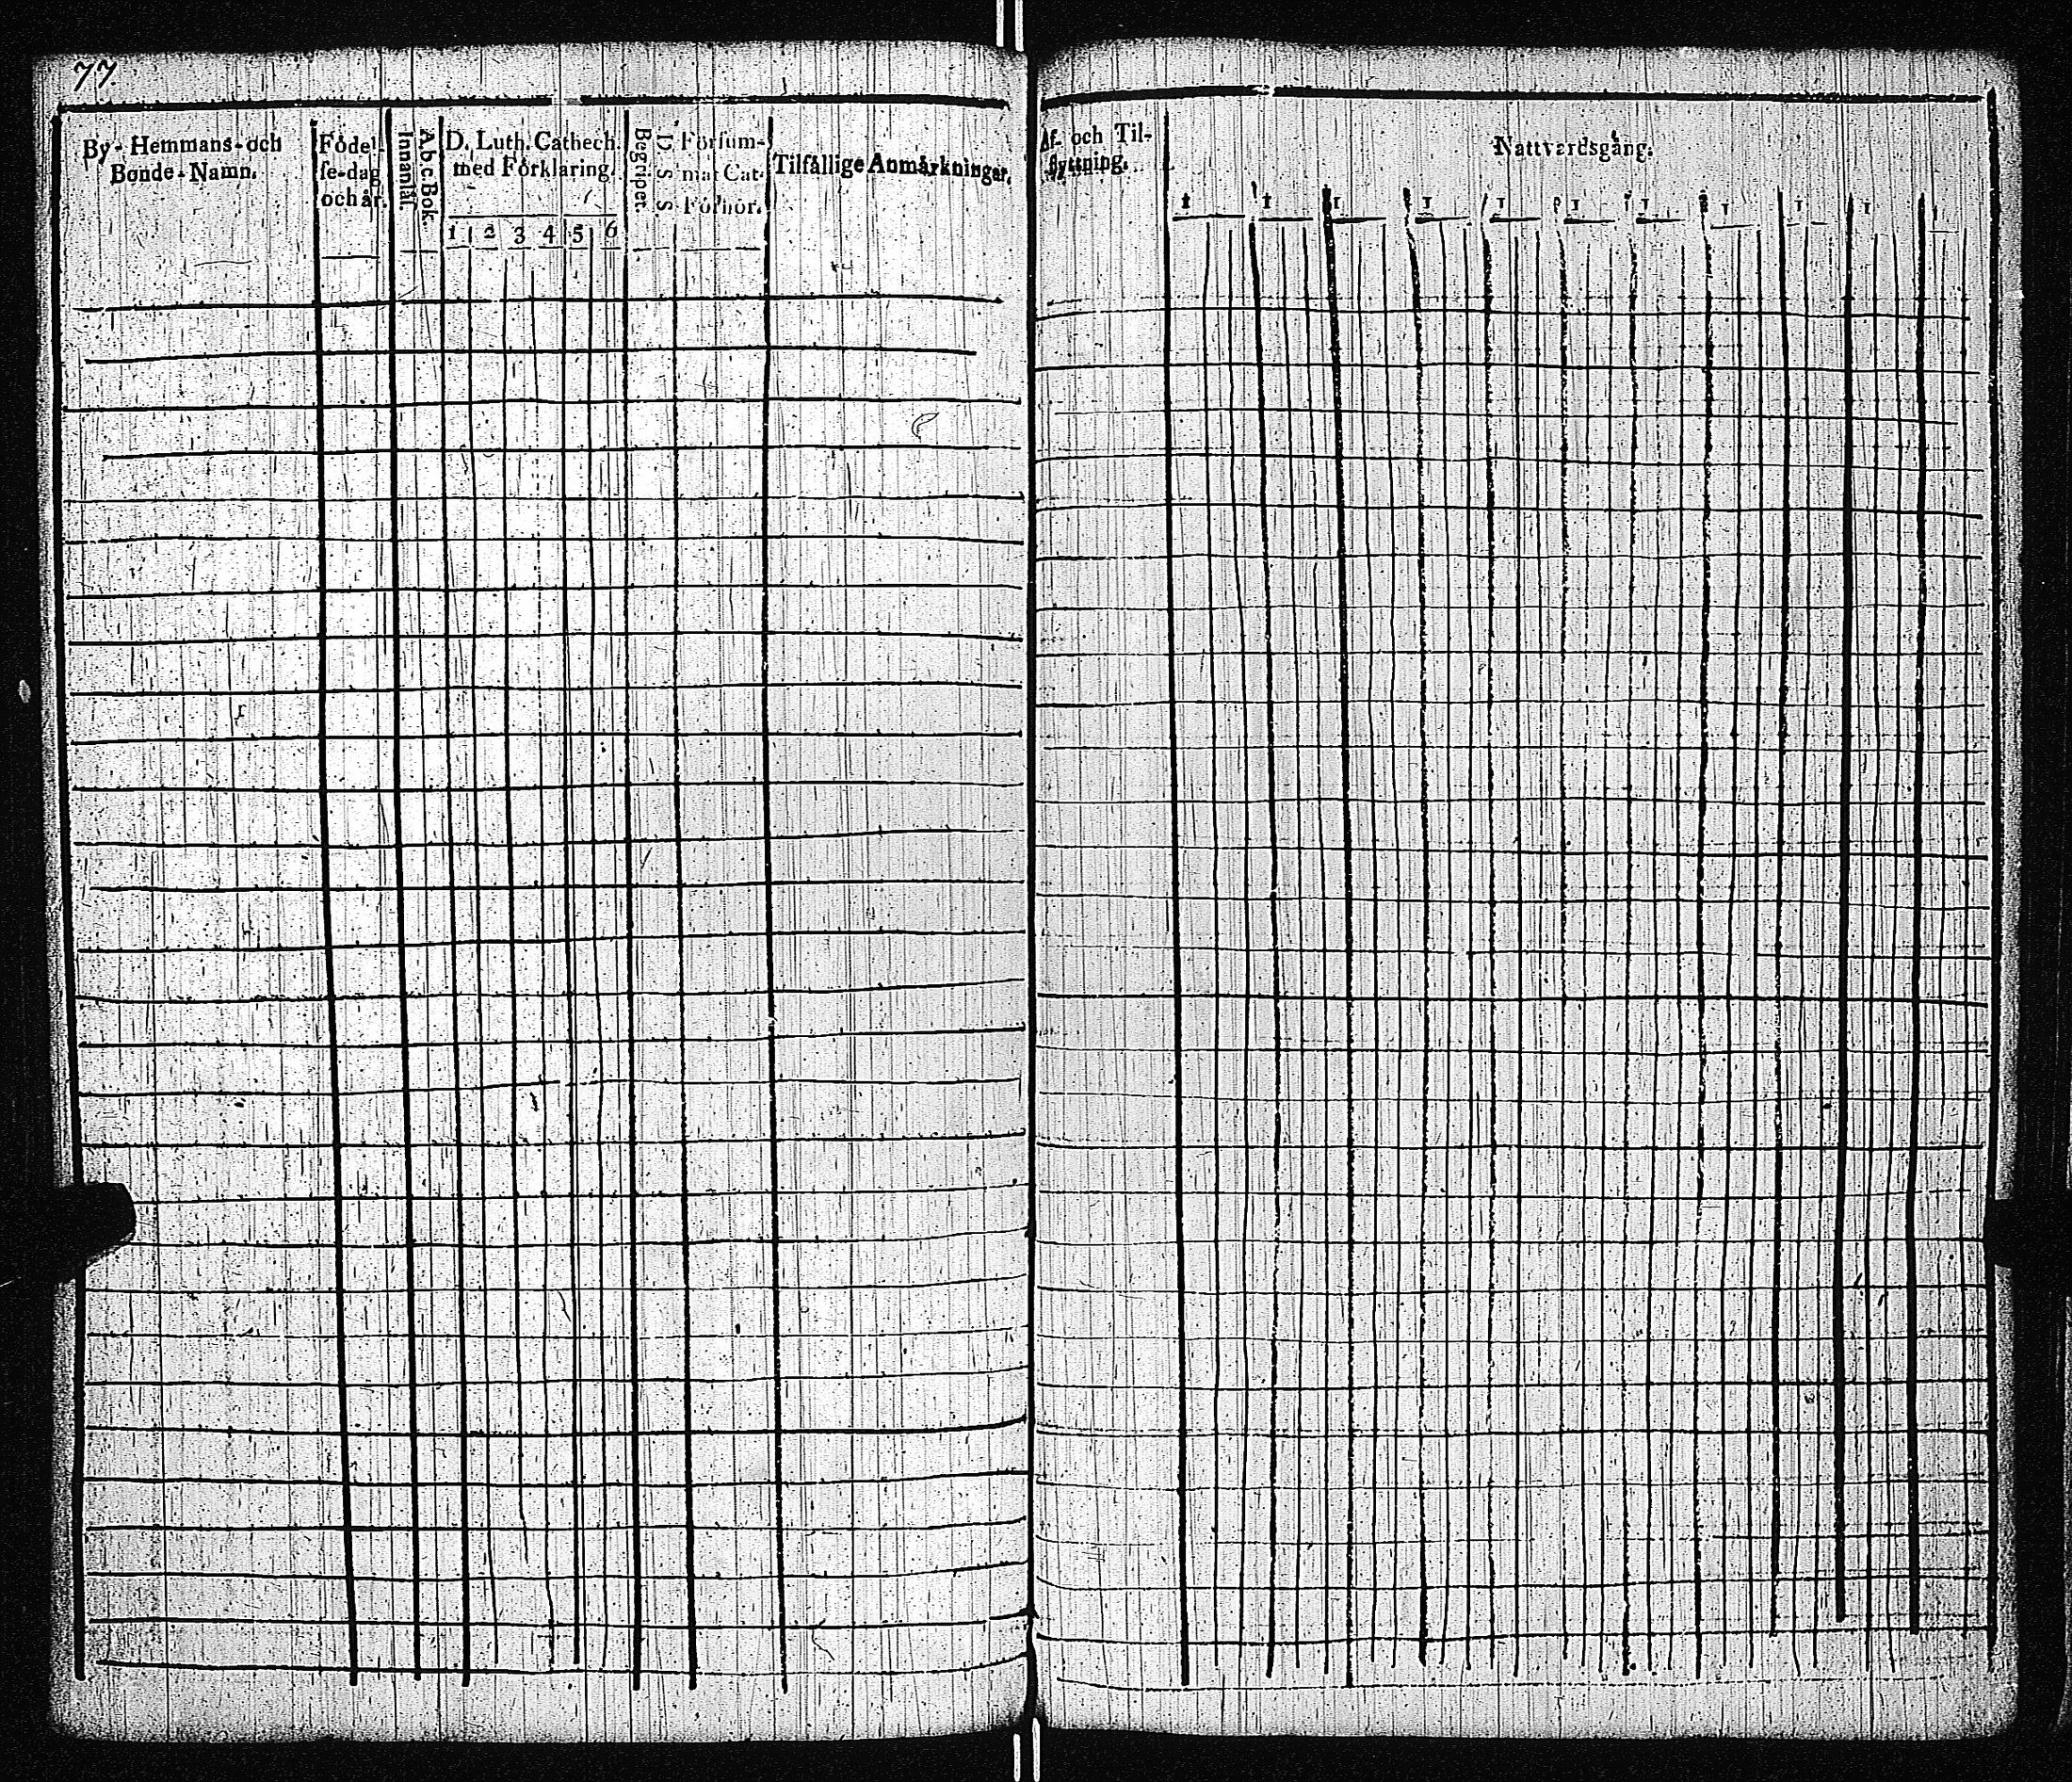 77
By- Hemmans- och
Bonde-Namn.
Födel-
se-dag
och år.
Innanläs.
A b c Bok.
D. Luth. Cathech.
med Förklaring.
1 2 3 4 5 6
Begripet.
D. S. S.
Försum-
mat Cat.
Förhör.
Tilfällige Anmärkningar.
Af- och Til-
flyttning.
Nattvardsgång.
1 1 1 1 1 1 1 1 1 1 1